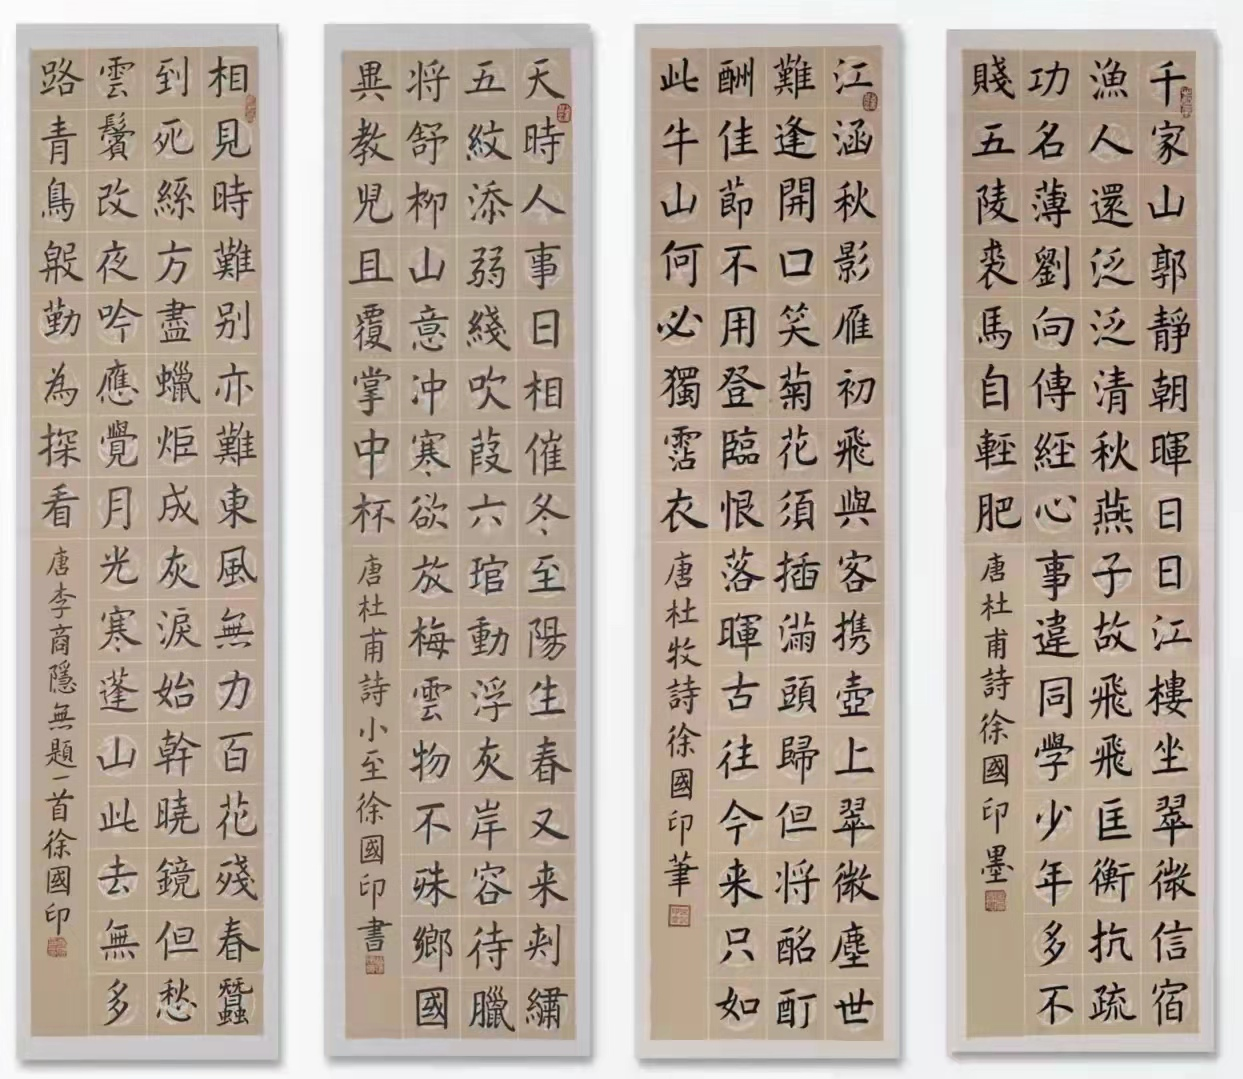 千家山郭靜朝暉日日江樓坐翠微信宿
漁人還泛泛清秋燕子故飛飛匡衡抗疏
功名薄劉向傳經心事違同學少年多不
賤五陵裘馬自輕肥 唐杜甫詩徐國印墨
江涵秋影雁初飛與客携壺上翠微塵世
難逢開口笑菊花須插滿頭歸但将酩酊
酬佳節不用登臨恨落暉古往今来只如
此牛山何必獨霑衣 唐杜牧詩徐國印筆
天時人事日相催冬至陽生春又来刺繡
五紋添弱綫吹葭六琯動浮灰岸容待臘
将舒柳山意冲寒欲放梅雲物不殊鄉國
異教兒且覆掌中杯 唐杜甫詩小至徐國印書
相見時難别亦難東風無力百花殘春蠶
到死絲方盡蠟炬成灰淚始幹曉鏡但愁
雲鬢改夜吟應覺月光寒蓬山此去無多
路青鳥殷勤為探看 唐李商隱無題一首徐國印